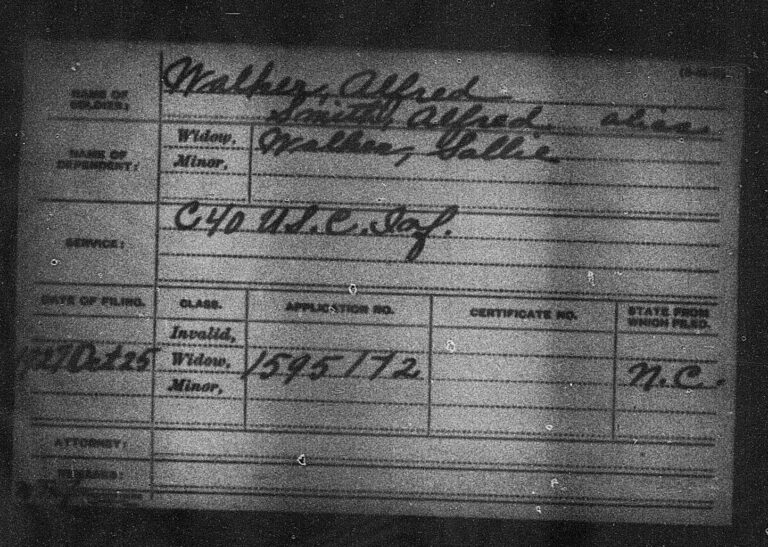 NAME OF SOLDIER: Walker, Alfred
Smith, Alfred alias
NAME OF DEPENDENT: Widow, Walker, Sallie
Minor,
SERVICE: C 40 U.S.C. Inf.
DATE OF FILING. CLASS. APPLICATION NO. CERTIFICATE NO. STATE FROM WHICH FILED.
Invalid,
1927 Oct 25 Widow, 1595172 N.C.
Minor,
ATTORNEY:
REMARKS: